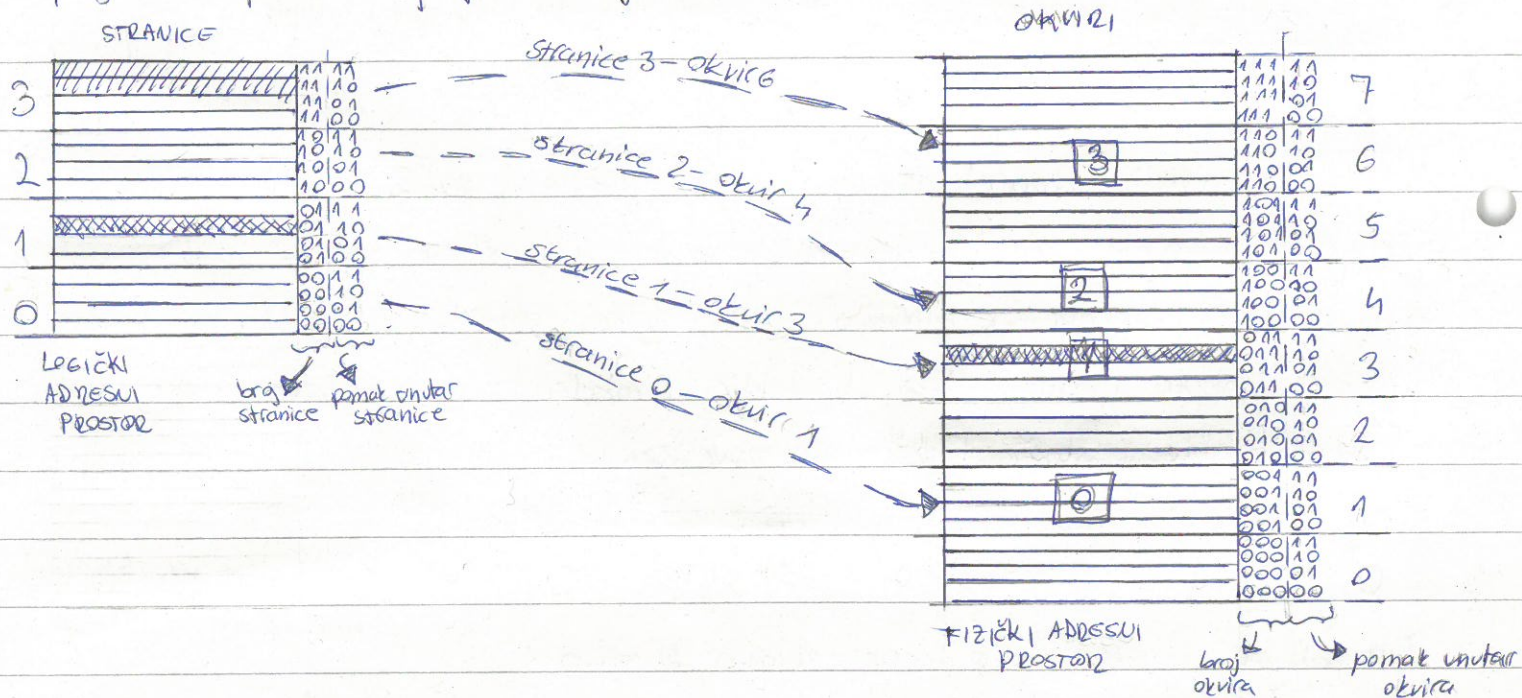 STRANICE
3
11 11
11 10
11 01
11 00
2
10 11
10 10
10 01
10 00
1
01 11
01 10
01 01
01 00
0
00 11
00 10
00 01
00 00
LOGIČKI
ADRESNI
PROSTOR
broj
stranice
pomak unutar
stranice
stranice 3 - okvir 6
stranice 2 - okvir 4
stranice 1 - okvir 3
stranice 0 - okvir 1
OKVIRI
111 11
111 10
111 01
111 00
7
3
110 11
110 10
110 01
110 00
6
101 11
101 10
101 01
101 00
5
2
100 11
100 10
100 01
100 00
4
1
011 11
011 10
011 01
011 00
3
010 11
010 10
010 01
010 00
2
0
001 11
001 10
001 01
001 00
1
000 11
000 10
000 01
000 00
0
FIZIČKI ADRESNI
PROSTOR
broj
okvira
pomak unutar
okvira